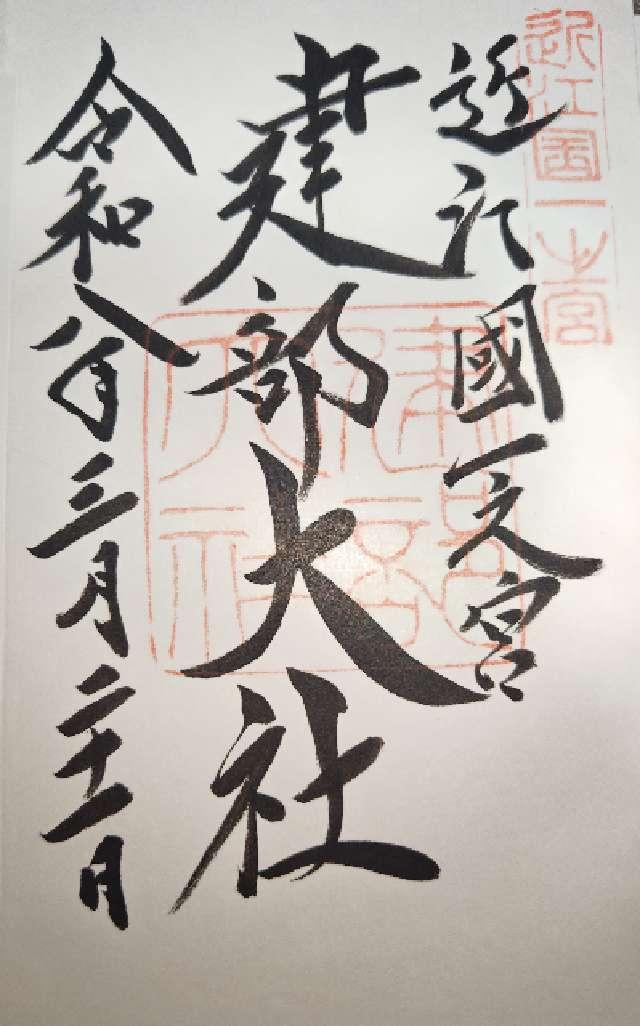 近江國一之宮
近江國一之宮
建部大社
令和八年三月二十一日